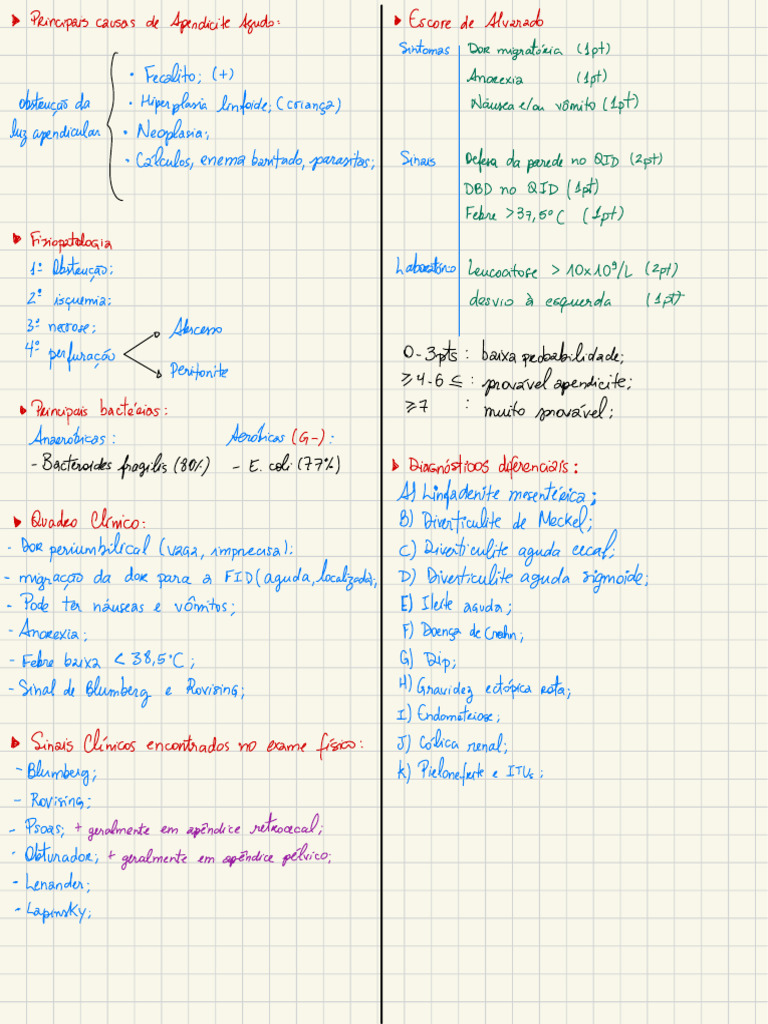 ▸ Principais causas de Apendicite Aguda:
obstrução da
luz apendicular
• Fecalito; (+)
• Hiperplasia linfoide; (criança)
• Neoplasia;
• Cálculos, enema baritado, parasitas;
▸ Fisiopatologia
1º Obstrução;
2º isquemia;
3º necrose;
4º perfuração
Abscesso
Peritonite
▸ Principais bactérias:
Anaeróbicas: Aeróbicas (G-):
- Bacteroides fragilis (80%) - E. coli (77%)
▸ Quadro Clínico:
- Dor periumbilical (vaga, imprecisa);
- migração da dor para a FID (aguda, localizada);
- Pode ter náuseas e vômitos;
- Anorexia;
- Febre baixa < 38,5°C;
- Sinal de Blumberg e Rovising;
▸ Sinais Clínicos encontrados no exame físico:
- Blumberg;
- Rovising;
- Psoas; + geralmente em apêndice retrocecal;
- Obturador; + geralmente em apêndice pélvico;
- Lenander;
- Lapinsky;
▸ Escore de Alvarado
Sintomas Dor migratória (1pt)
Anorexia (1pt)
Náusea e/ou vômito (1pt)
Sinais Defesa da parede no QID (2pt)
DBD no QID (1pt)
Febre >37,5°C (1pt)
Laboratório Leucocitose > 10x10⁹/L (2pt)
desvio à esquerda (1pt)
0-3pts: baixa probabilidade;
≥4-6≤: provável apendicite;
≥7 : muito provável;
▸ Diagnósticos diferenciais:
A) Linfadenite mesentérica;
B) Diverticulite de Meckel;
C) Diverticulite aguda cecal;
D) Diverticulite aguda sigmoide;
E) Ileíte aguda;
F) Doença de Crohn;
G) Dip;
H) Gravidez ectópica rota;
I) Endometriose;
J) Cólica renal;
K) Pielonefrite e ITUs;